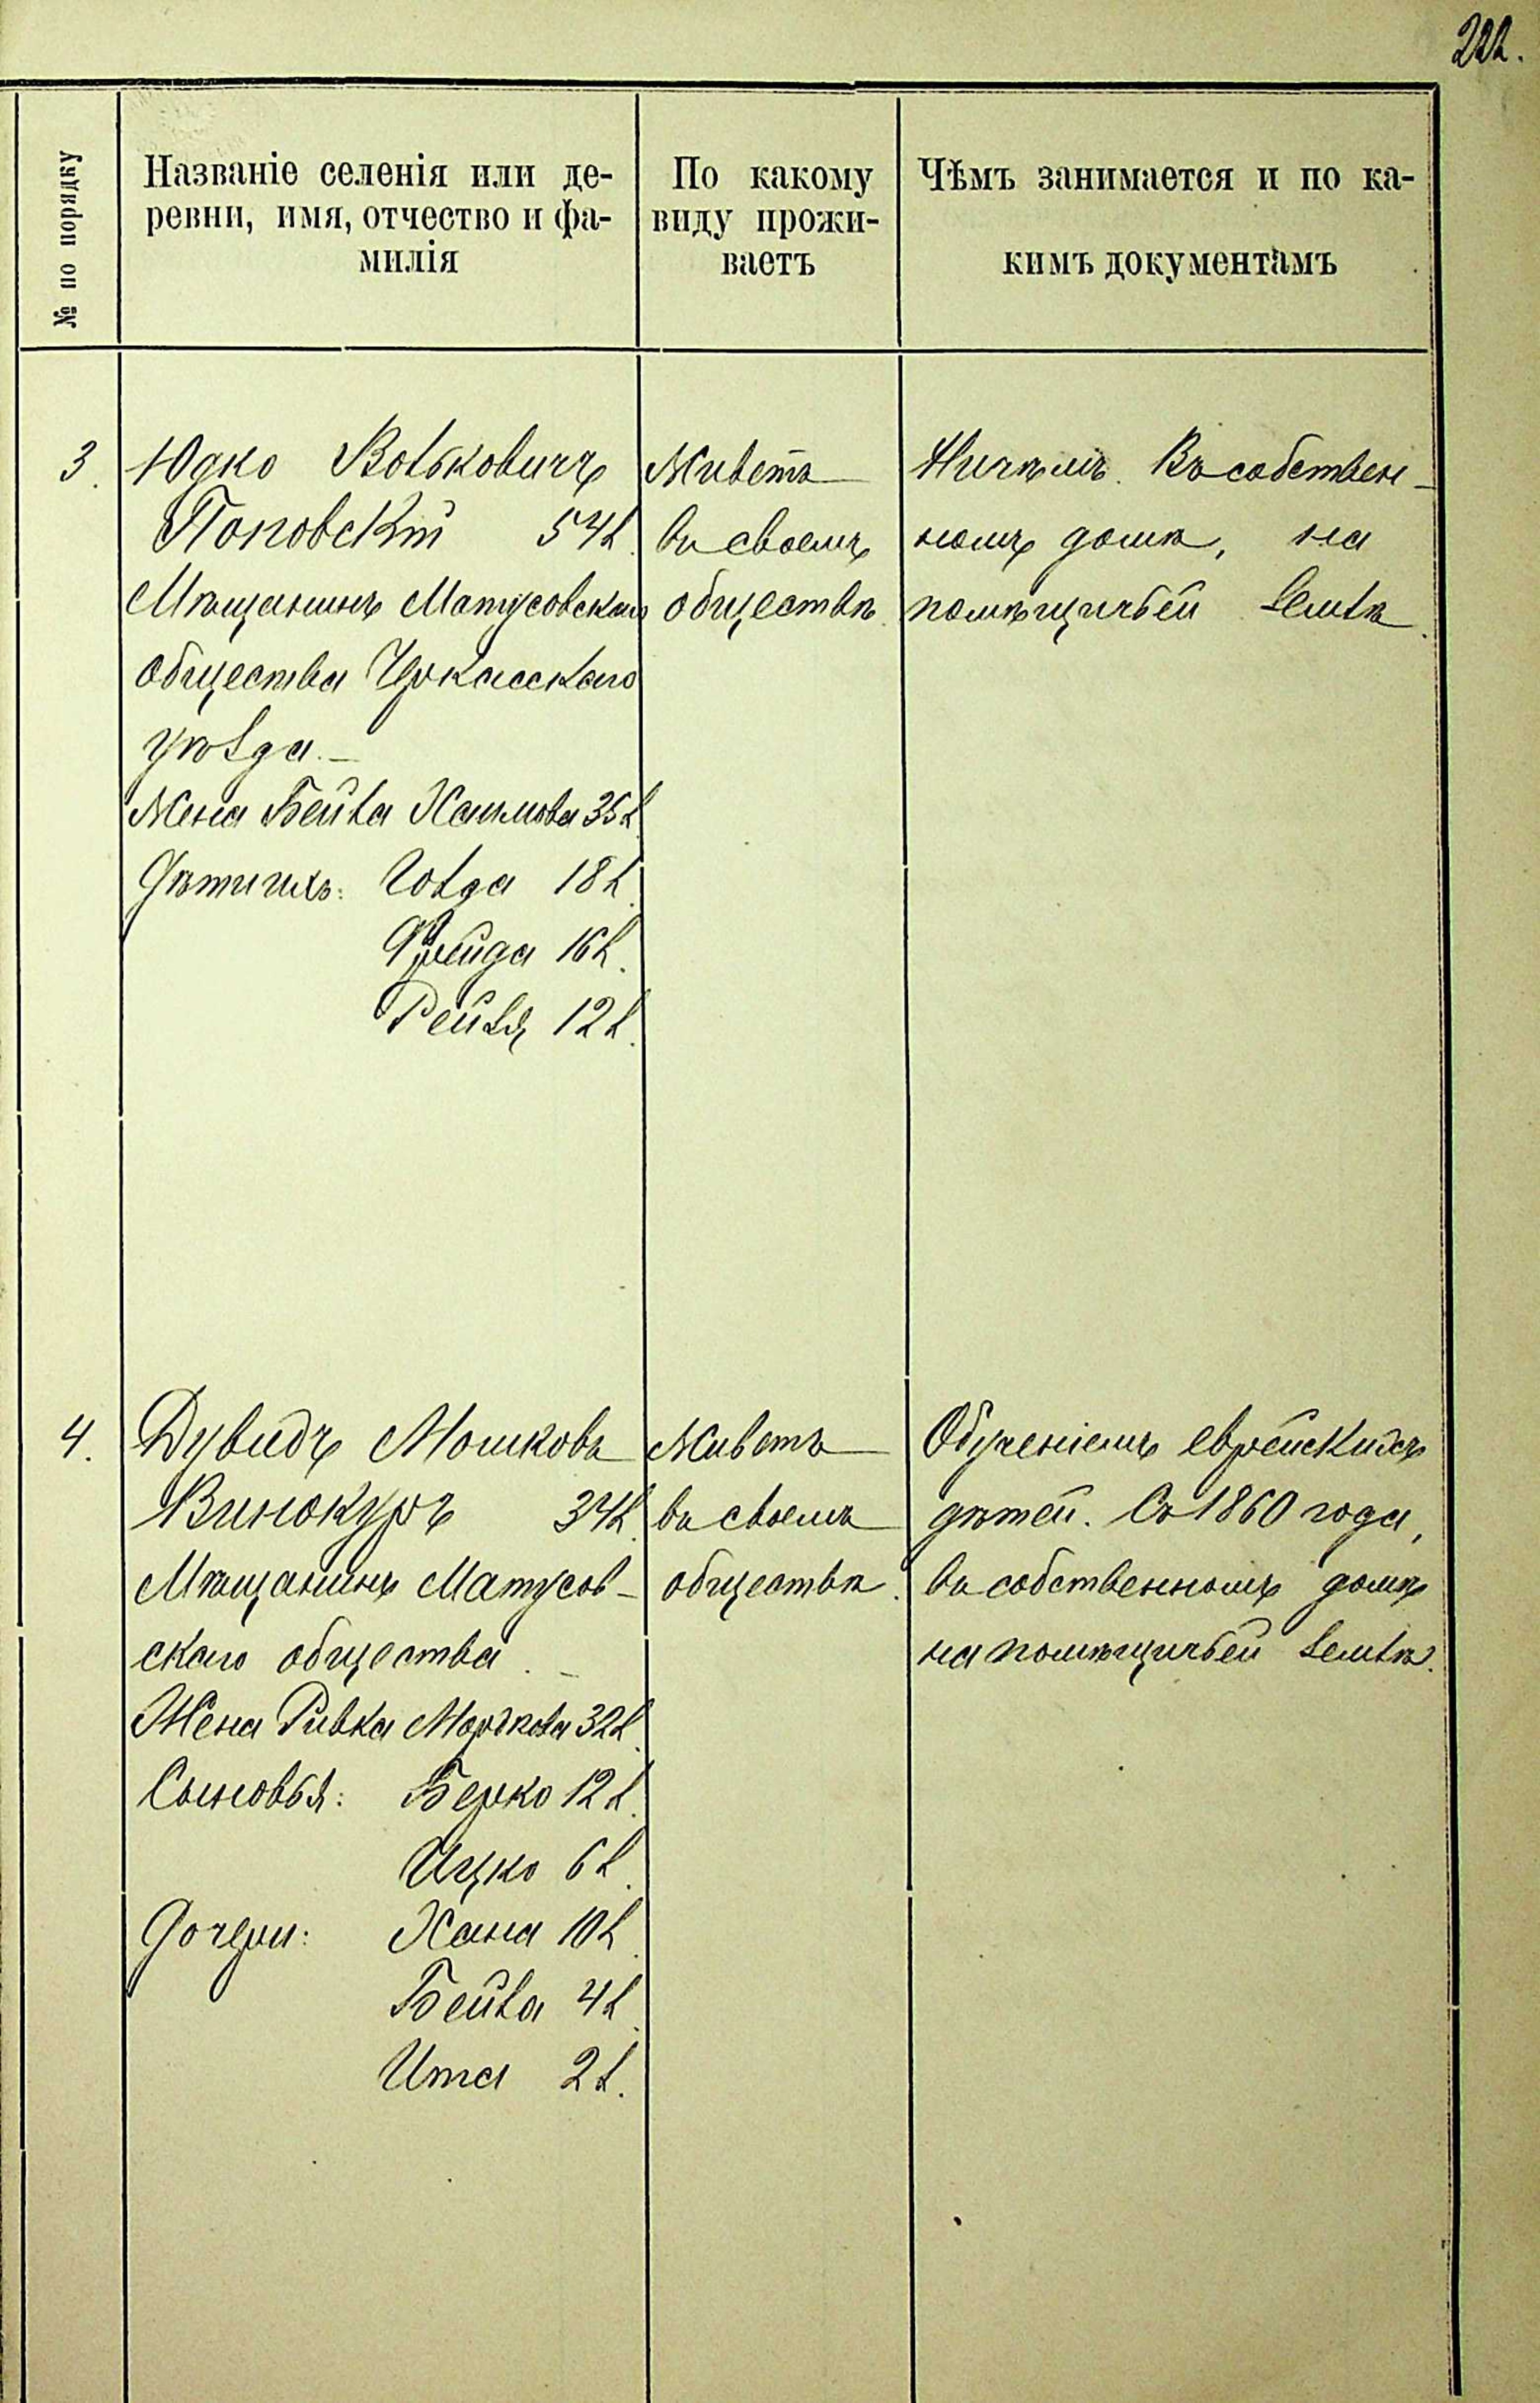 222.
№ по порядку
Названіе селенія или де-
ревни, имя, отчество и фа-
милія
По какому
виду прожи-
ваетъ
Чѣмъ занимается и по ка-
кимъ документамъ
3.
Юдко Вольковичъ
Поповскій 54 л.
Мѣщанинъ Матусовскаго
общества Черкасскаго
уѣзда. —
Жена Бейла Хаимова 35 л.
Дѣти ихъ: Голда 18 л.
Фрейда 16 л.
Рейзя 12 л.
Живетъ
въ своемъ
обществѣ.
Ничѣмъ. Въ собствен-
номъ домѣ, на
помѣщичьей землѣ.
4.
Дувидъ Мошковъ
Винокуръ 34 л.
Мѣщанинъ Матусов-
скаго общества. —
Жена Ривка Мордкова 32 л.
Сыновья: Берко 12 л.
Ицко 6 л.
Дочери: Хана 10 л.
Бейла 4 л.
Ита 2 л.
Живетъ
въ своемъ
обществѣ.
Обученіемъ еврейскихъ
дѣтей. Съ 1860 года,
въ собственномъ домѣ
на помѣщичьей землѣ.